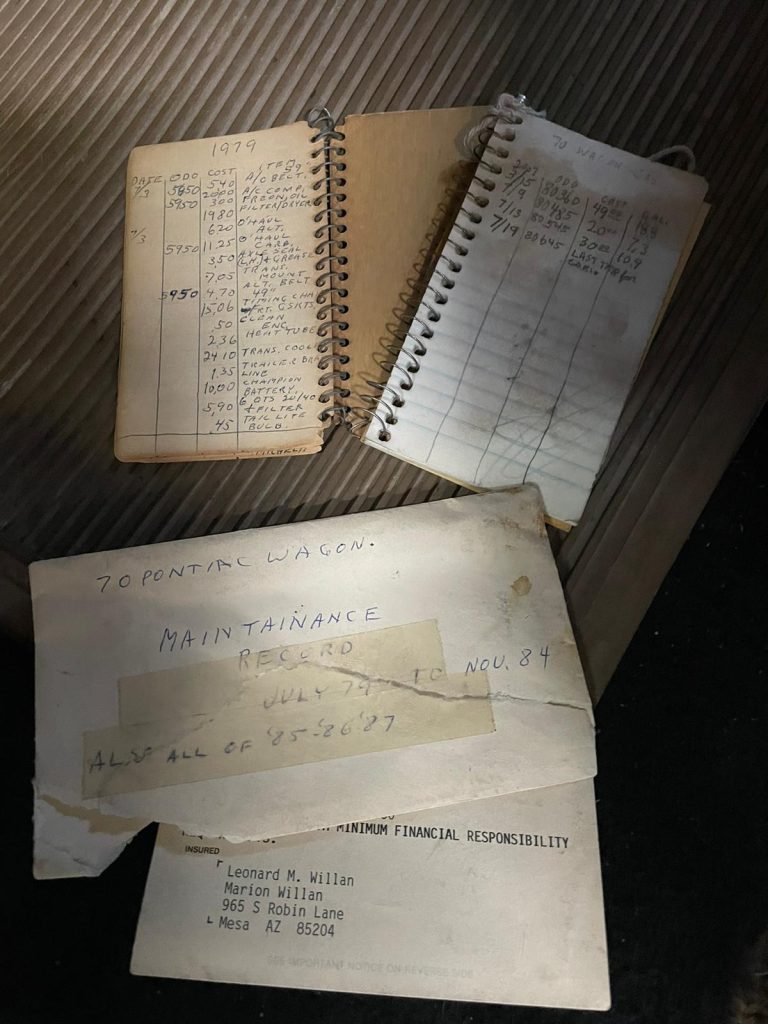 1979
DATE ODO COST ITEM
7/3 5950 5.40 A/C BELT.
2000 A/C COMP,
5950 300 FREON, OIL
FILTER/DRYER
1980 O'HAUL
7/3 620 ALT.
O'HAUL
5950 11.25 CARB.
AXLE SEAL
3,50 (L.H.) + GREASE
TRANS.
7.05 MOUNT
ALT. BELT
5950 4.70 49"
TIMING CHA
15,06 FRT. GSKTS.
CLEAN
.50 ENG.
2,36 HEAT TUBE
2410 TRANS. COOL
TRAILER BRA
1.35 LINE
10,00 CHAMPION
BATTERY.
6 QTS 20/40
5,90 + FILTER
.45 TAIL LITE
BULB.
70 WAGON
ODO COST GAL.
3/15 80360 49 8.8
7/9 80485 20 7.3
7/13 80545 30 10.9
7/19 80645 LAST TRIP for
70 PONTIAC WAGON.
MAINTAINANCE
RECORD
JULY 79 TO NOV. 84
ALSO ALL OF '85-'86'87
MINIMUM FINANCIAL RESPONSIBILITY
INSURED
Leonard M. Willan
Marion Willan
965 S Robin Lane
Mesa AZ 85204
SEE IMPORTANT NOTICE ON REVERSE SIDE